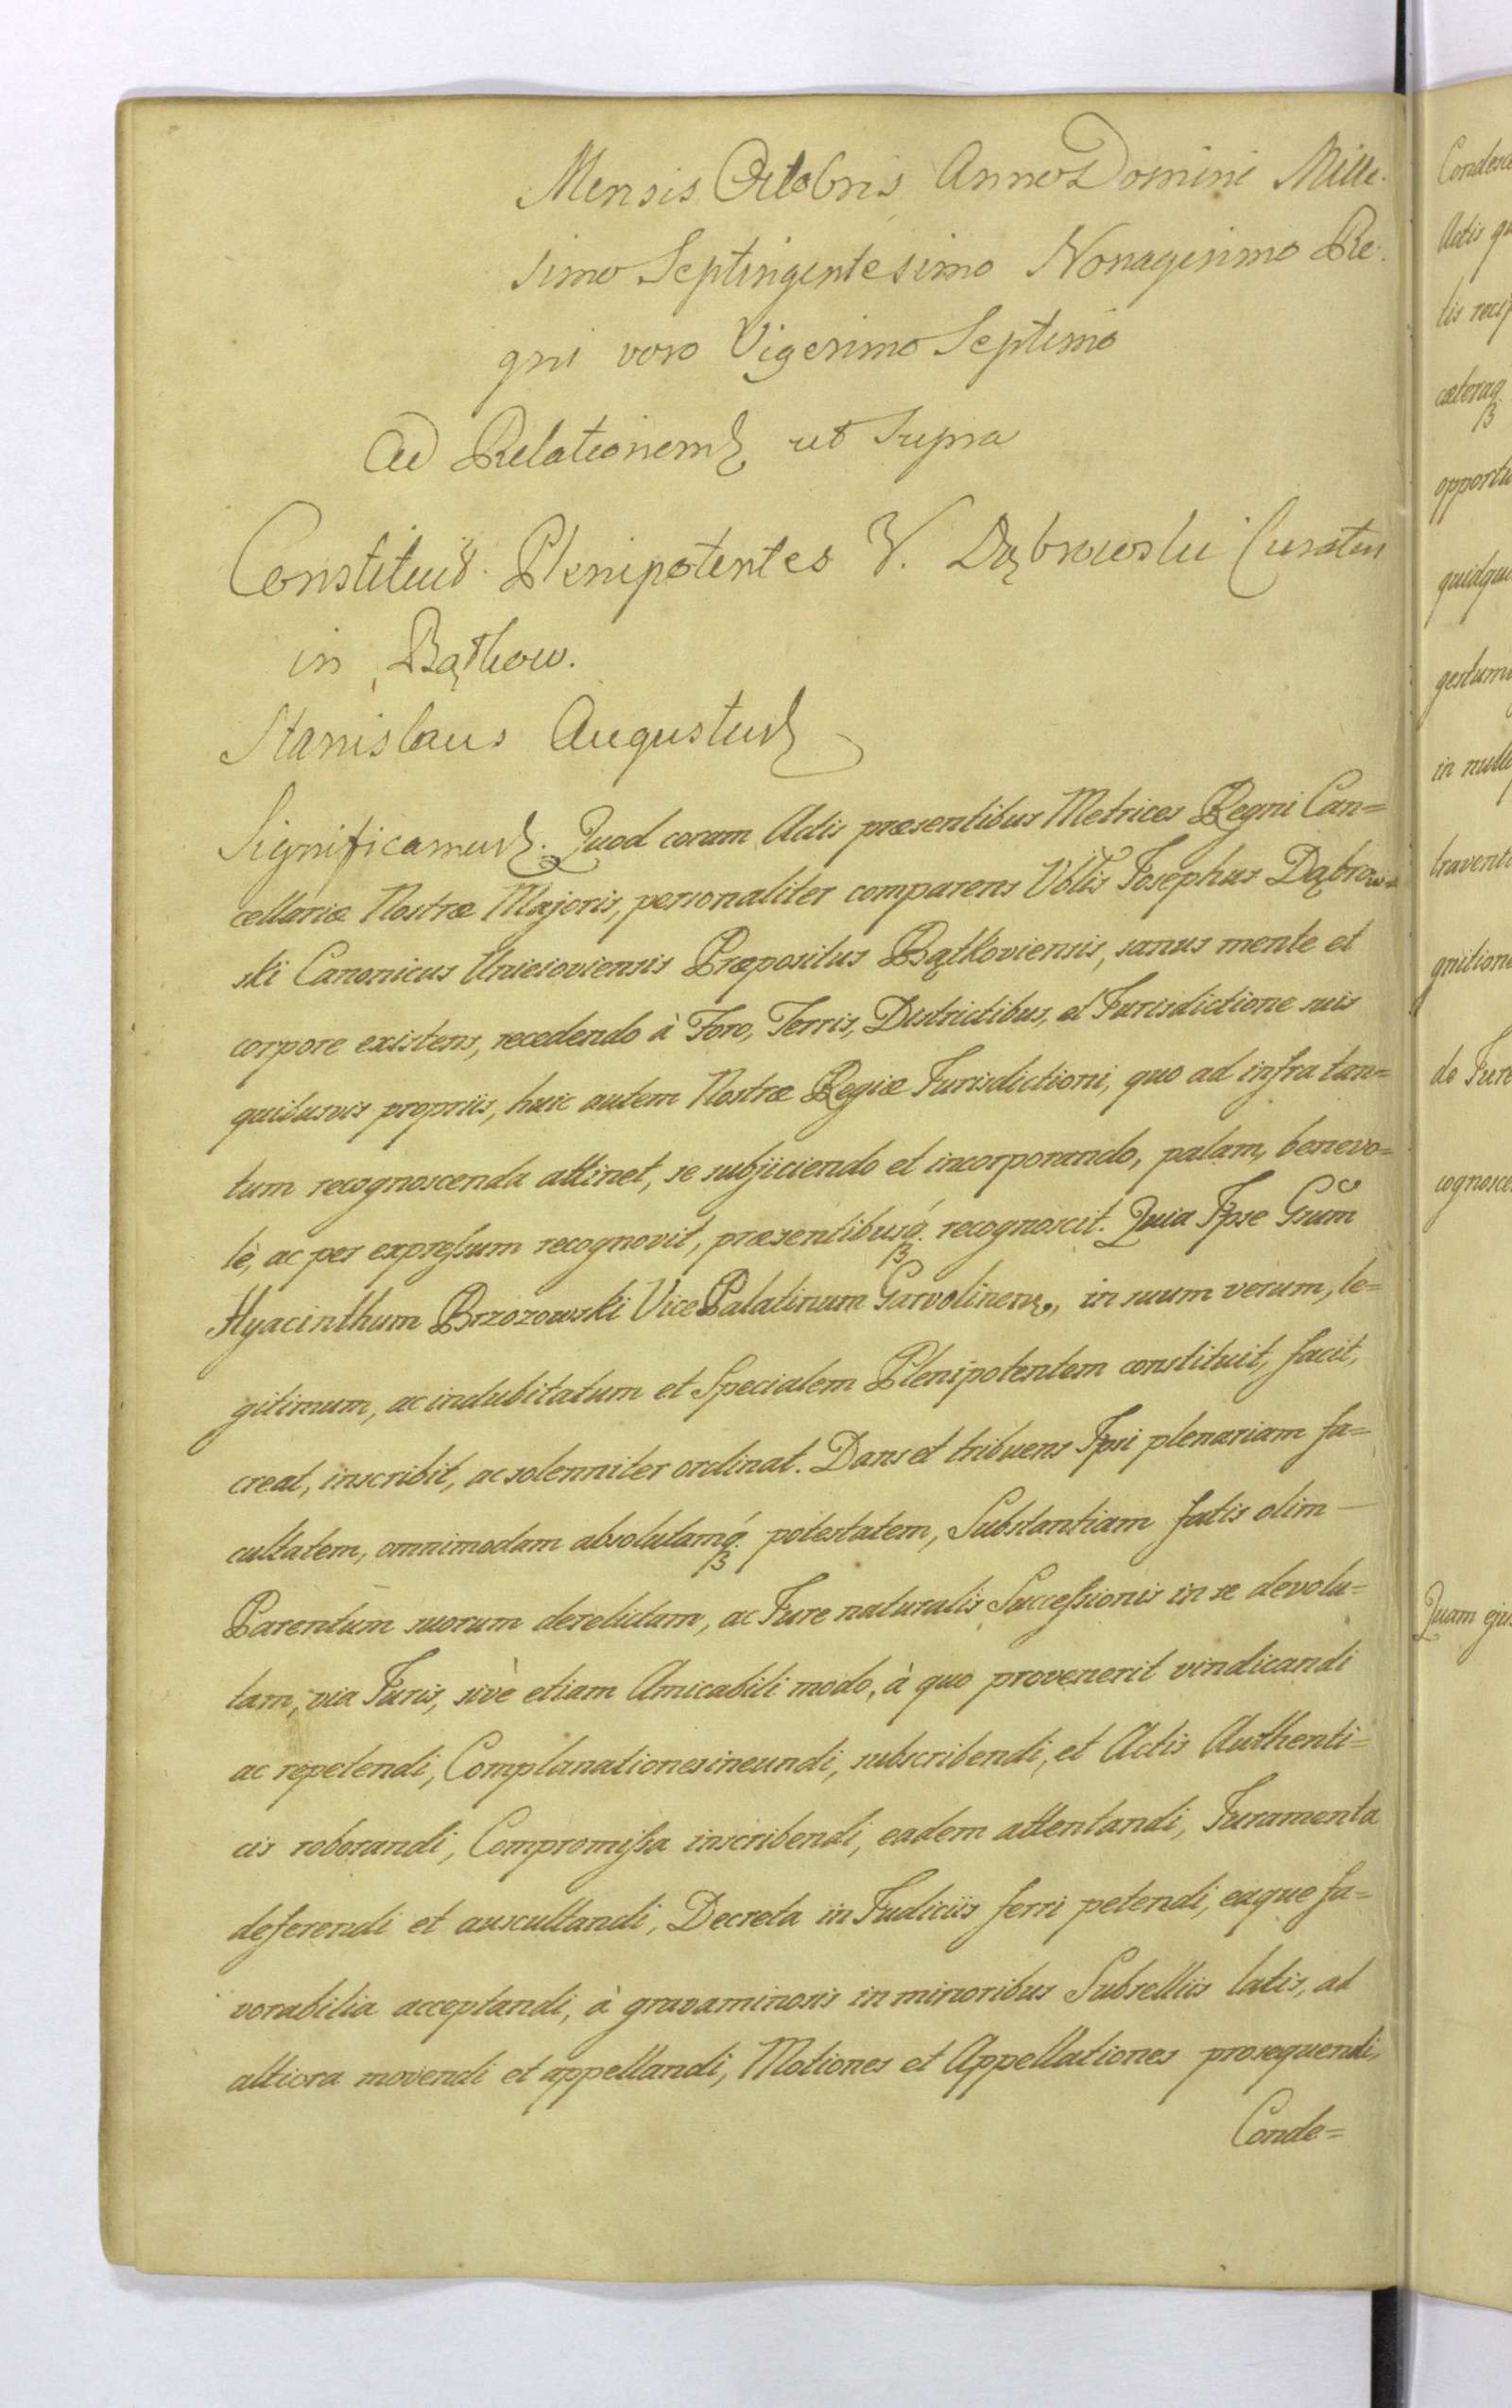 Mensis Octobris Anno Domini Mille.
simo Septingentesimo Nonagesimo Re.
gni vero Vigesimo Septimo
Ad Relationem ut Supra
Constituit Plenipotentes V. Dąbrowski Curatus
in Bątkow.
Stanislaus Augustus
Significamus. Quod coram Actis præsentibus Metrices Regni Can=
cellariæ Nostræ Majoris, personaliter comparens Vblis Josephus Dąbrow=
ski Canonicus Unieioviensis Præpositus Bątkoviensis, sanus mente et
corpore existens, recedendo à Foro, Terris, Districtibus, et Jurisdictione suis
quibusvis propriis, huic autem Nostræ Regiæ Jurisdictioni, quo ad infra tan=
tum recognoscenda attinet, se subjiciendo et incorporando, palam, benevo=
lè, ac per expressum recognovit, præsentibusq. recognoscit. Quia Ipse Gsum
Hyacinthum Brzozowski Vice Palatinum Garvolinens, in suum verum, le=
gitimum, ac indubitatum et Specialem Plenipotentem constituit, facit,
creat, inscribit, ac solenniter ordinat. Dans et tribuens Ipsi plenariam fa=
cultatem, omnimodam absolutamq. potestatem, Substantiam fatis olim
Parentum suorum derelictam, ac Jure naturalis Successionis in se devolu=
tam, via Juris, sivè etiam Amicabili modo, à quo provenerit vindicandi
ac repetendi, Complanationes ineundi, subscribendi, et Actis Authenti=
cis roborandi, Compromissa inscribendi, eadem attentandi, Juramenta
deferendi et auscultandi, Decreta in Judiciis ferri petendi, eaque fa=
vorabilia acceptandi, à gravaminosis in minoribus Subselliis latis, ad
altiora movendi et appellandi, Motiones et Appellationes prosequendi,
Conde=
Actis
opportu
in
de Jure
Quam